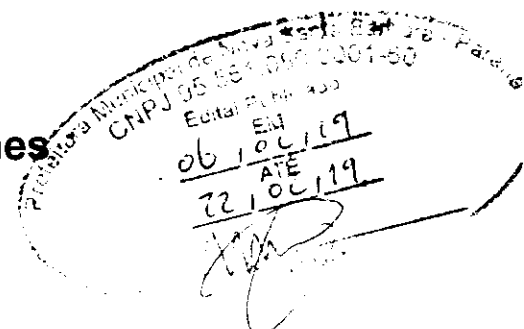 Prefeitura Municipal de Nova Santa Barbara - Paraná
CNPJ 95.561.080/0001-60
Edital Publicado
nes
EM
06 / 02 / 19
ATE
22 / 02 / 19